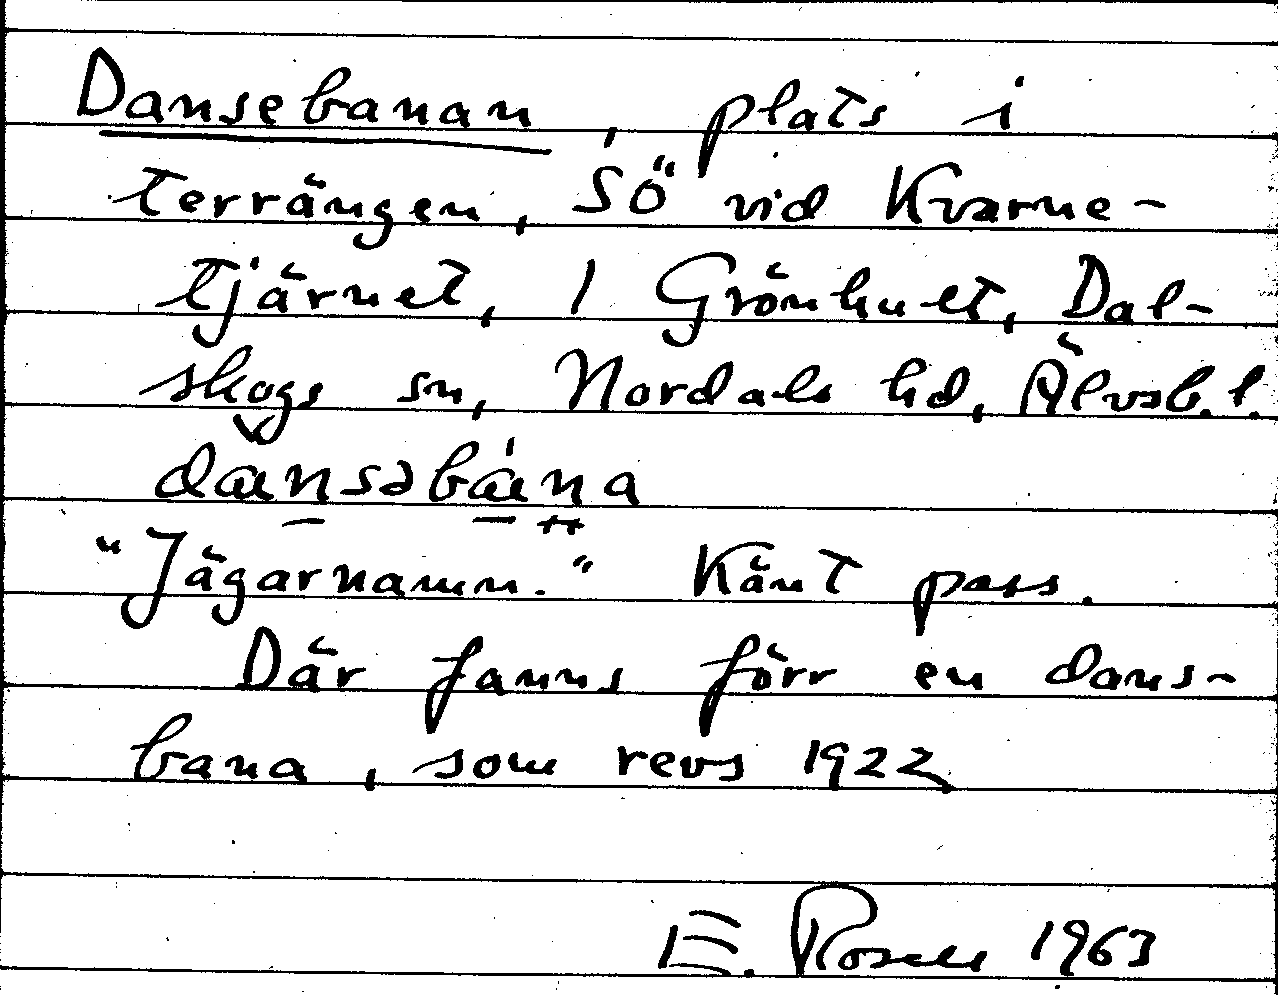 Dansebanan, plats i
terrängen, SÖ vid Kvarne-
tjärnet, 1 Grönhult, Dal-
skogs sn, Nordals hd, Älvsb. l.
dansəbána
"Jägarnamn." Känt pass.
Där fanns förr en dans-
bana, som revs 1922
E. Rosell 1963